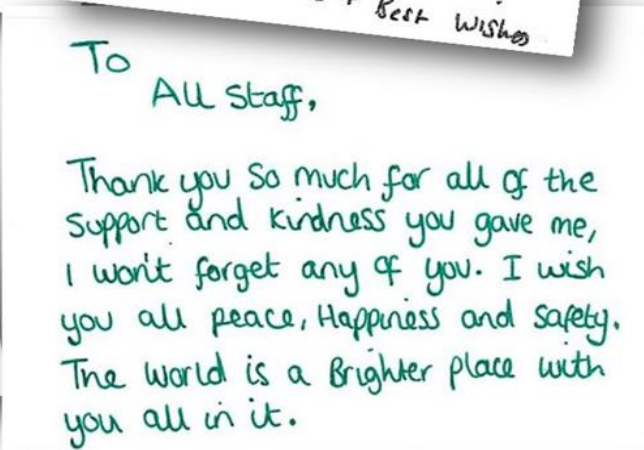 Best Wishes
To
All Staff,
Thank you so much for all of the
support and kindness you gave me,
I won't forget any of you. I wish
you all peace, Happiness and safety.
The world is a Brighter place with
you all in it.